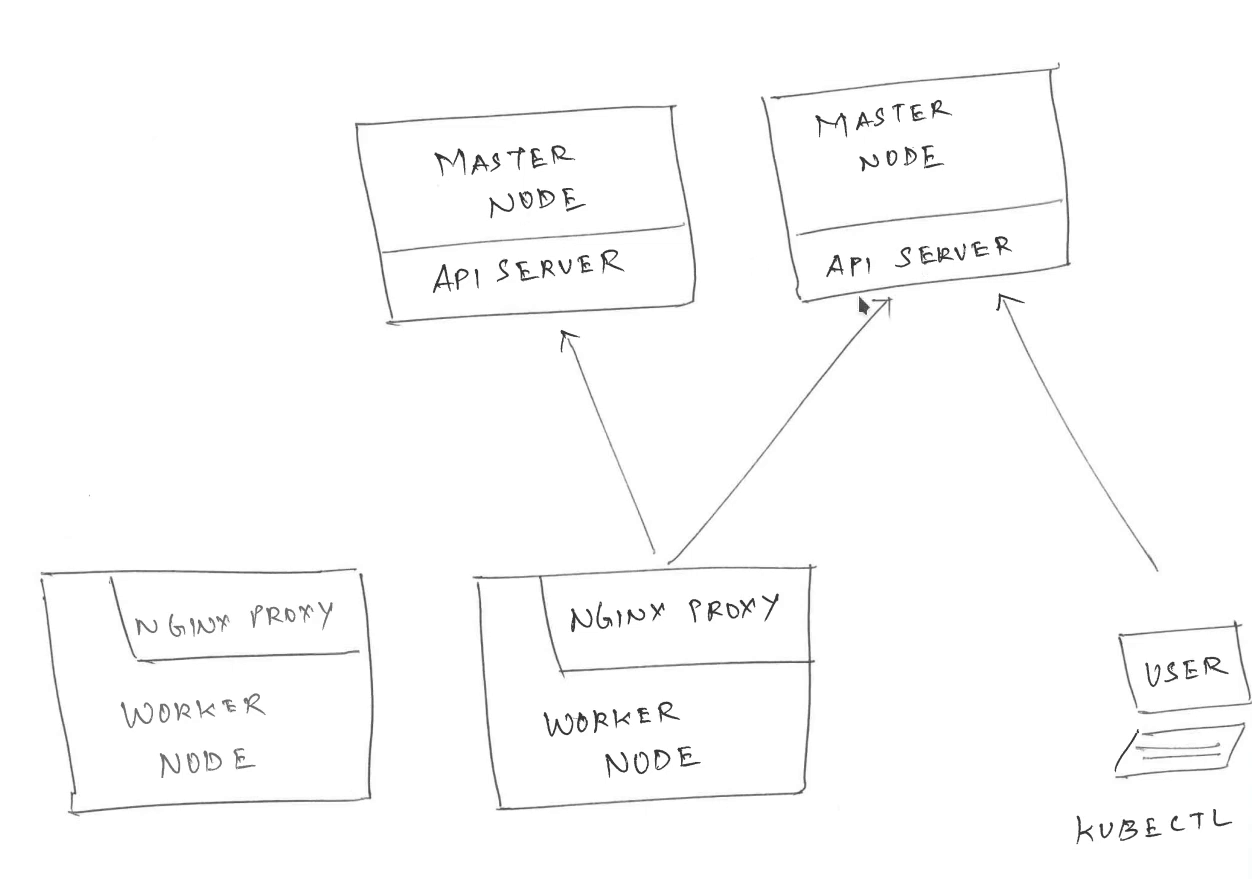 MASTER
NODE
API SERVER
MASTER
NODE
API SERVER
NGINX PROXY
WORKER
NODE
NGINX PROXY
WORKER
NODE
USER
KUBECTL